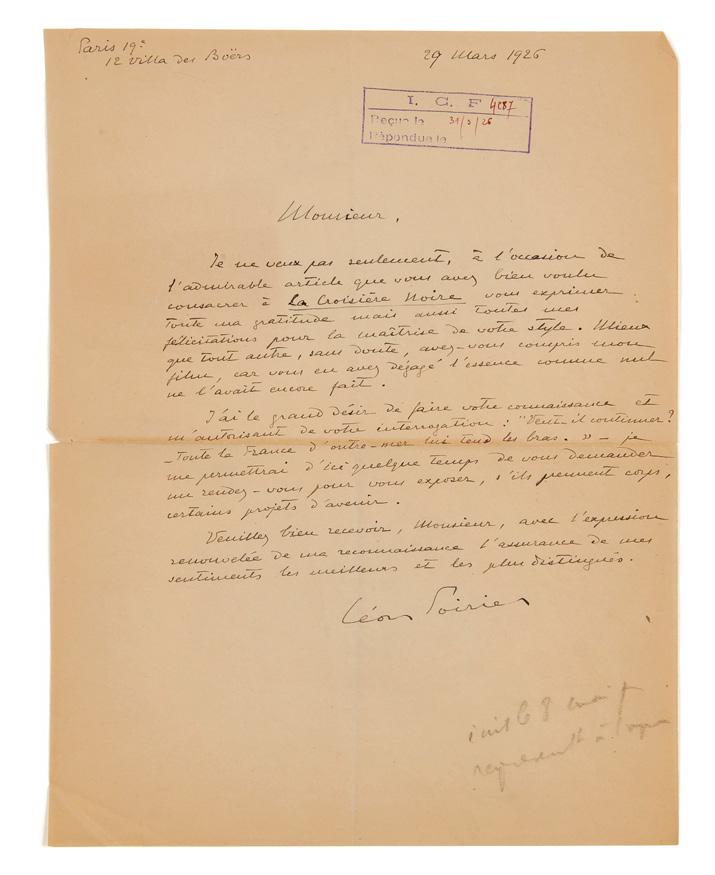 Paris 19e
12 Villa des Boërs
29 Mars 1926
I. C. F 4287
Reçue le 31/3/26
Répondue le
Monsieur,
Je ne veux pas seulement, à l'occasion de
l'admirable article que vous avez bien voulu
consacrer à La Croisière Noire vous exprimer
toute ma gratitude mais aussi toutes mes
félicitations pour la maîtrise de votre style. Mieux
que tout autre, sans doute, avez-vous compris mon
film, car vous en avez dégagé l'essence comme nul
ne l'avait encore fait.
J'ai le grand désir de faire votre connaissance et
m'autorisant de votre interrogation : "Veut-il continuer?
-Toute la France d'outre-mer lui tend les bras." - je
me permettrai d'ici quelque temps de vous demander
un rendez-vous pour vous exposer, s'ils prennent corps,
certains projets d'avenir.
Veuillez bien recevoir, Monsieur, avec l'expression
renouvelée de ma reconnaissance l'assurance de mes
sentiments les meilleurs et les plus distingués.
Léon Poirier
le 8
à